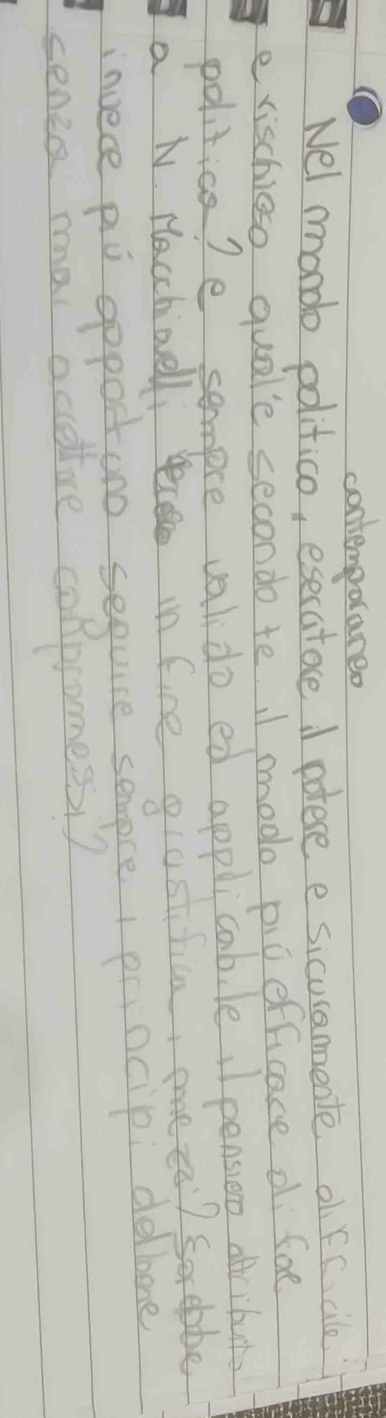 contemporaneo
Nel mondo politico, esercitare il potere e sicuramente difficile
e rischioso qual'è secondo te il modo più efficace di far
politica? e sempre valido ed applicabile il pensiero attribuito
a N. Macchiavelli in fine giustifica i mezzi? Sarebbe
invece più opportuno seguire sempre i principi del bene
senza mai accettare compromessi?